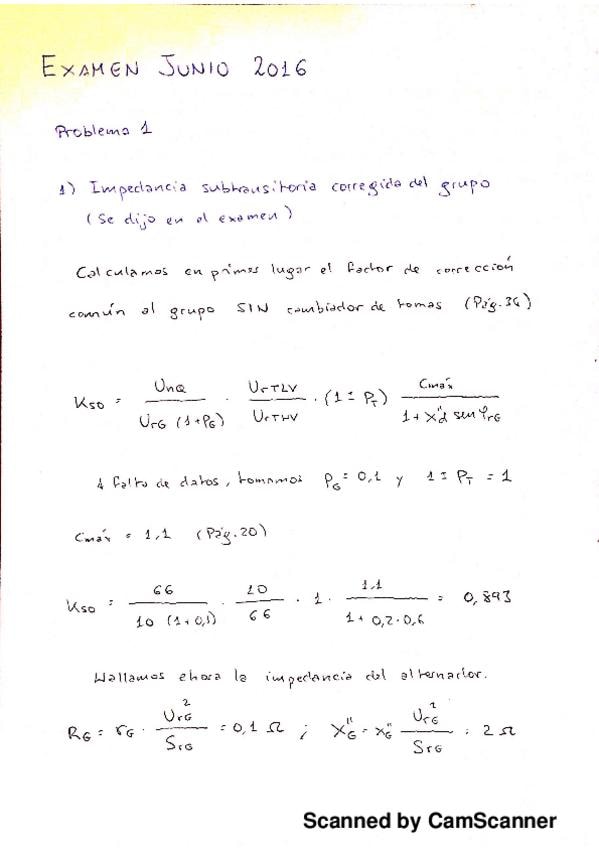 EXAMEN JUNIO 2016
Problema 1
1) Impedancia subtransitoria corregida del grupo
(Se dijo en el examen)
Calculamos en primer lugar el factor de corrección
común al grupo SIN cambiador de tomas (Pág. 34)
Kso = UnQ / UrG (1+PG) · UrTLV / UrTHV · (1 ± PT) Cmáx / 1 + X"d sen φrG
A falta de datos, tomamos PG = 0,1 y 1 ± PT = 1
Cmáx = 1,1 (Pág. 20)
Kso = 66 / 10 (1+0,1) · 10 / 66 · 1 · 1,1 / 1 + 0,2·0,6 = 0,893
Hallamos ahora la impedancia del alternador.
RG = rG · UrG² / SrG = 0,1 Ω ; X"G = x"G UrG² / SrG = 2 Ω
Scanned by CamScanner